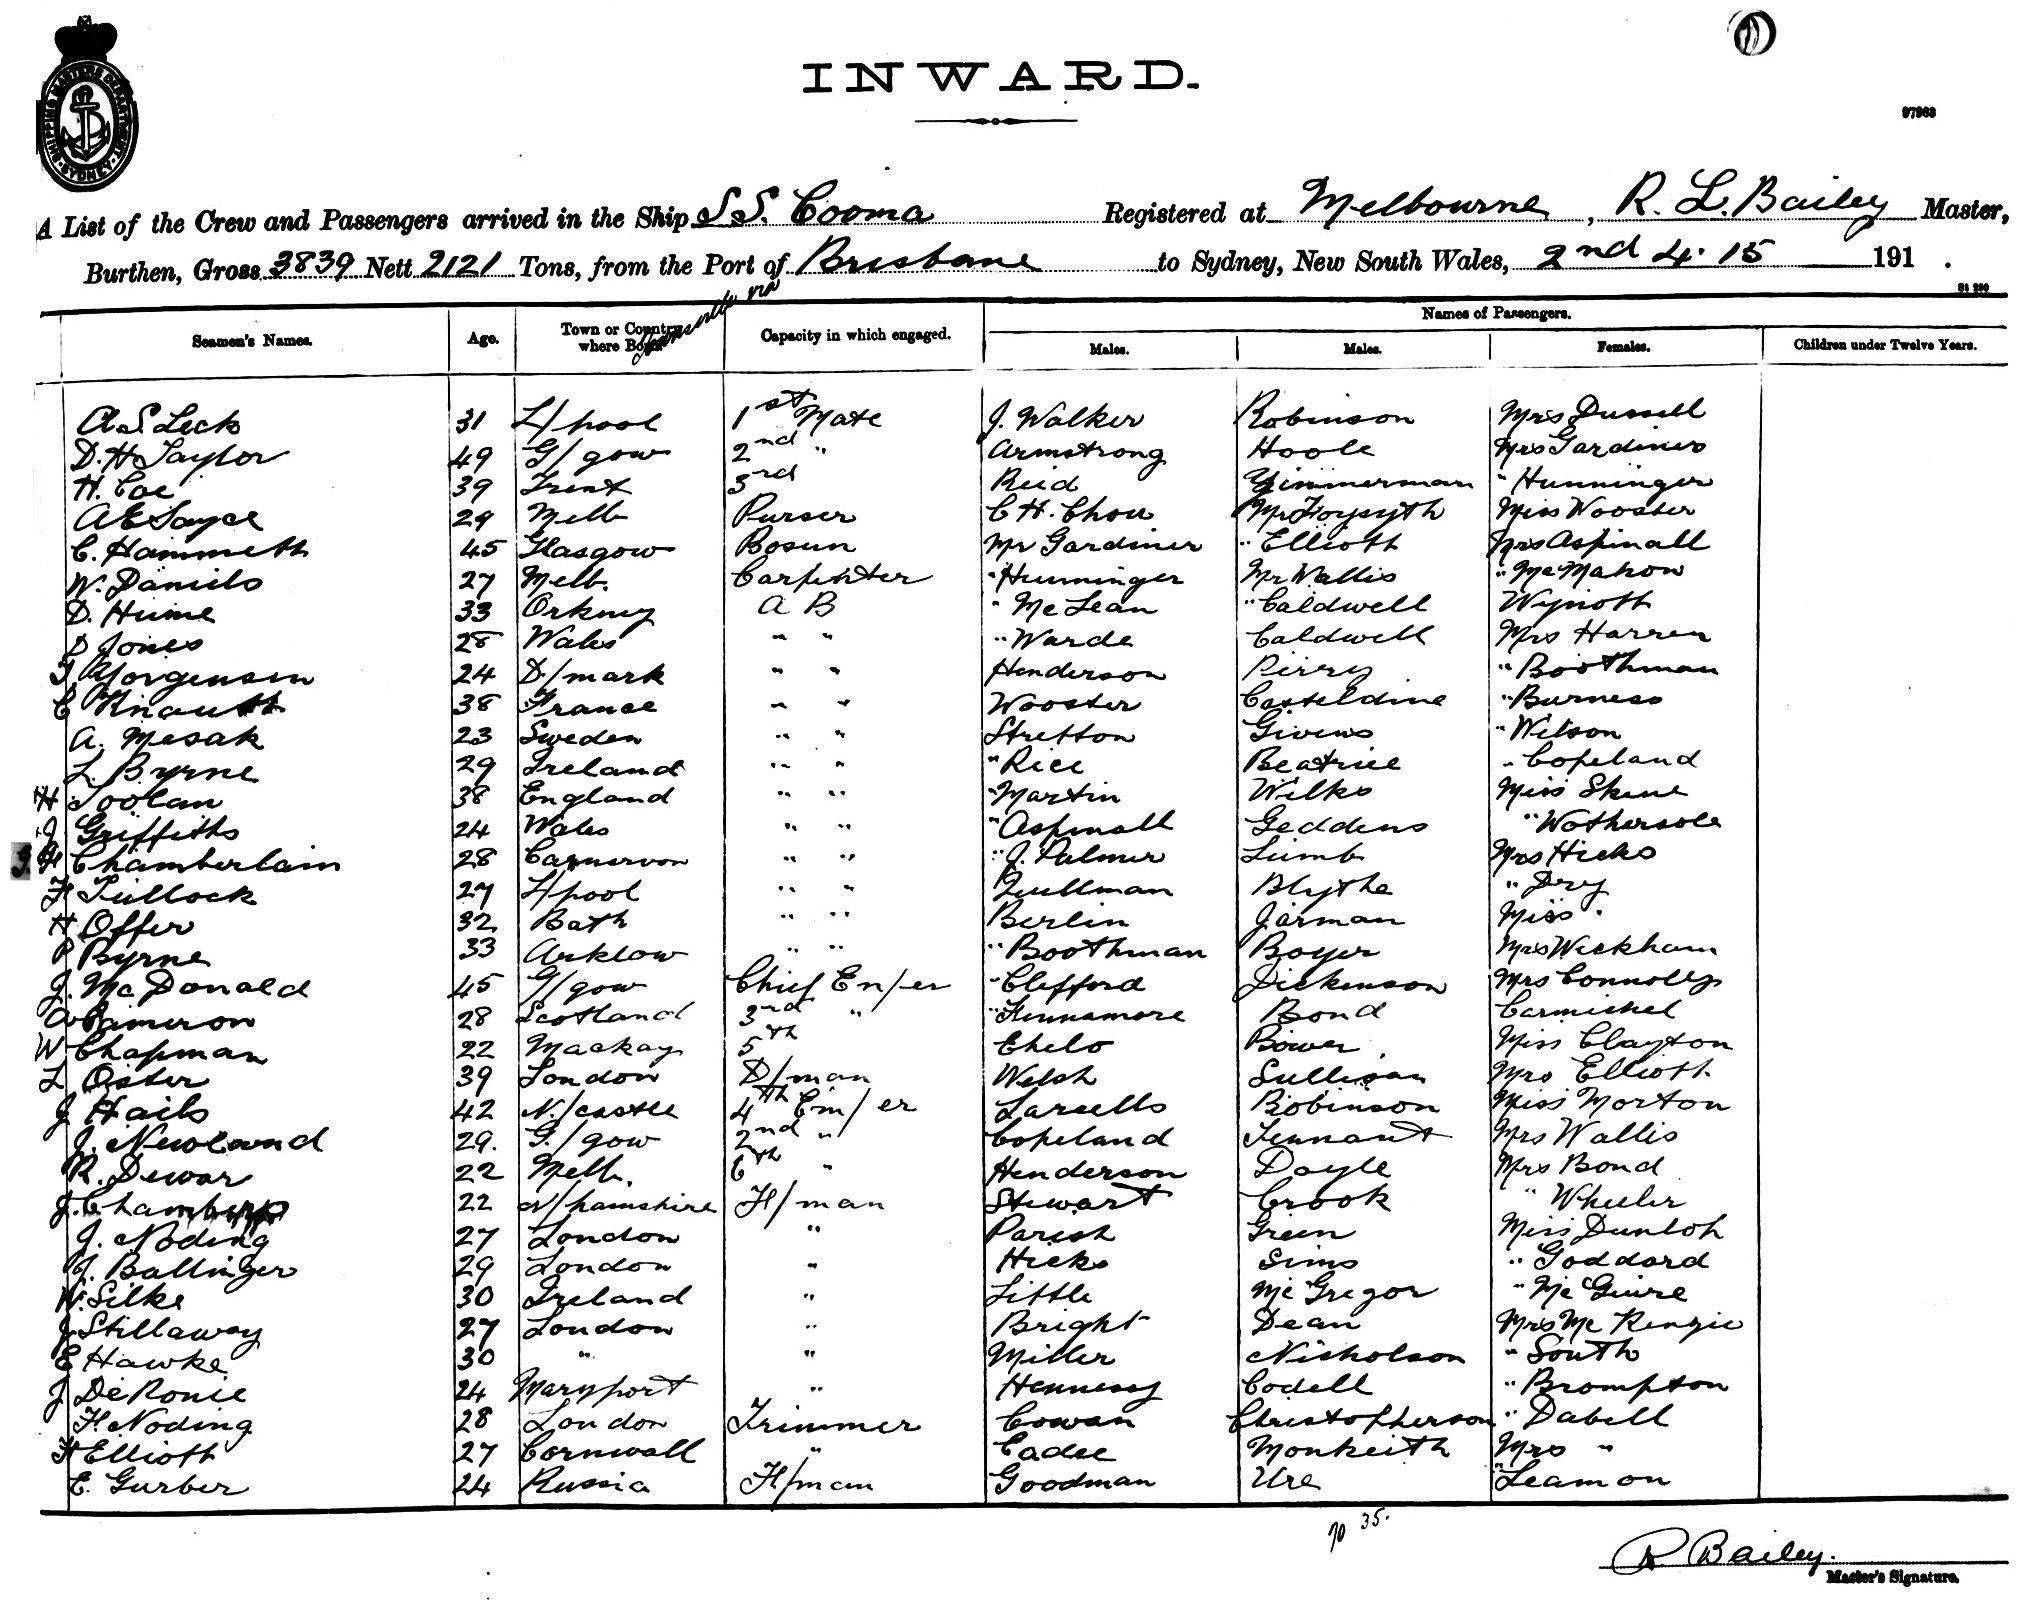 SHIPPING MASTERS DEPARTMENT · SYDNEY ·
INWARD.
97963
A List of the Crew and Passengers arrived in the Ship S.S. Cooma Registered at Melbourne, R. L. Bailey Master,
Burthen, Gross 3839 Nett 2121 Tons, from the Port of Brisbane to Sydney, New South Wales, 2nd 4.15 191 .
St 280
via
Names of Passengers.
Seamen's Names. Age. Town or Country where Born. Capacity in which engaged. Males. Males. Females. Children under Twelve Years.
A S Leck 31 L/pool 1st Mate J. Walker Robinson Mrs Dussell
D. H Taylor 49 G/gow 2nd " Armstrong Hoole Mrs Gardiner
H. Coe 39 Trent 3rd Reid Zimmerman " Hunninger
A E Sayce 29 Melb Purser C H. Chou Mr Foysyth Miss Wooster
C. Hammett 45 Glasgow Bosun Mr Gardiner " Elliott Mrs Aspinall
W. Daniels 27 Melb. Carpenter " Hunninger Mr Wallis " McMahon
D. Hume 33 Orkney A B " McLean " Caldwell Wynott
D Jones 28 Wales " " " Warde Caldwell Mrs Harren
Yorgensen 24 D/mark " " Henderson Perry " Boothman
C Knautt 38 France " " Wooster Casteldine " Burness
A. Mesak 23 Sweden " " Stretton Givens " Wilson
L. Byrne 29 Ireland " " " Rice Beatrice " Copeland
H Toolan 38 England " " " Martin Wilks Miss Skene
J Griffiths 24 Wales " " " Aspinall Geddens " Wothersole
Chamberlain 28 Carnarvon " " " J. Palmer Lumb Mrs Hicks
F Tullock 27 L/pool " " Zullman Blythe " Dry
H Offer 32 Bath " " Berlin Jarman Miss "
P Byrne 33 Arklow " " " Boothman Boyer Mrs Wickham
J. McDonald 45 G/gow Chief En/er " Clifford Dickenson Mrs Connolly
Cameron 28 Scotland 3rd " " Kennamore Bond Carmichel
W Chapman 22 Mackay 5th Ehelo Bower Miss Clayton
L Oster 39 London D/man Welsh Sullivan Mrs Elliott
J Hails 42 N/castle 4th En/er Larsells Robinson Miss Morton
J. Newland 29. G/gow 2nd " Copeland Tennant Mrs Wallis
R. Dewar 22 Melb. 6th " Henderson Doyle Mrs Bond
J. Chambers 22 N/hamshire F/man Stewart Crook " Wheeler
J. Noding 27 London " Parish Green Miss Dunloh
J. Ballinger 29 London " Hicks Sims " Goddard
W. Silke 30 Ireland " Little McGregor " McGuire
J Stillaway 27 London " Bright Dean Mrs McKenzie
E Hawke 30 " " Miller Nicholson " South
J DeRonie 24 Maryport " Hennessy Codell " Brompton
F. Noding 28 London Trimmer Cowan Christopherson " Dabell
F Elliott 27 Cornwall " Eadee Monkeith Mrs "
E. Gurber 24 Russia F/man Goodman Ure Leamon
70 35.
R Bailey.
Master's Signature.